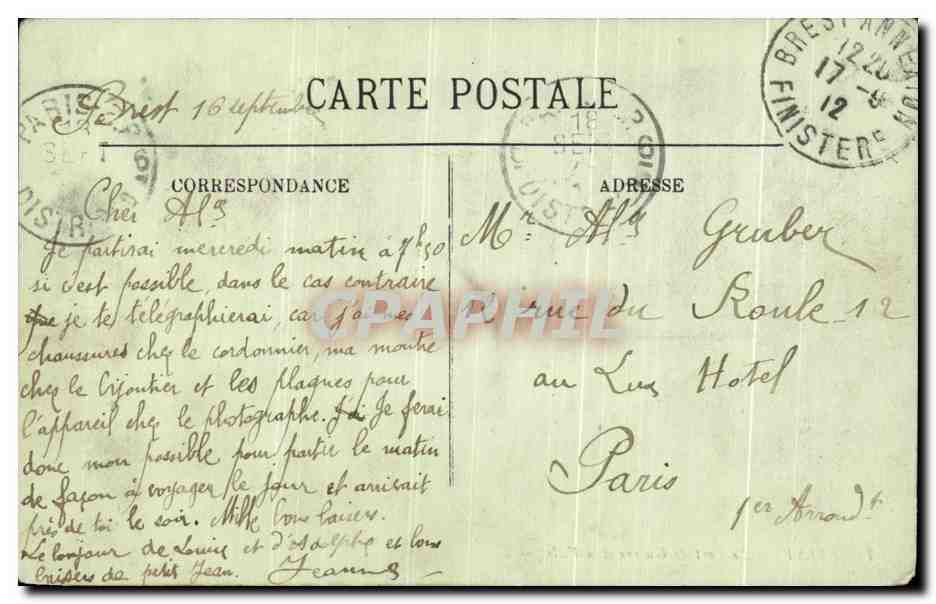 CARTE POSTALE
Brest 16 septembre
CORRESPONDANCE
Cher Als
Je partirai mercredi matin à 7h50
si c'est possible, dans le cas contraire
je te télégraphierai, car j'ai mes
chaussures chez le cordonnier, ma montre
chez le bijoutier et les plaques pour
l'appareil chez le photographe. Je ferai
donc mon possible pour partir le matin
de façon à voyager le jour et arrivait
près de toi le soir. Mille bons baisers.
Le bonjour de Louise et d'Adolphe et bons
baisers de petit Jean. Jeanne
ADRESSE
Mr Als Gruber
12 rue du Roule 12
au Lux Hotel
Paris
1er Arrondt
BREST ANNEXE
12 20
17 -9
12
FINISTERE
PARIS
SEPT
DISTRI
18
SEPT
DIST
CPAPHIL